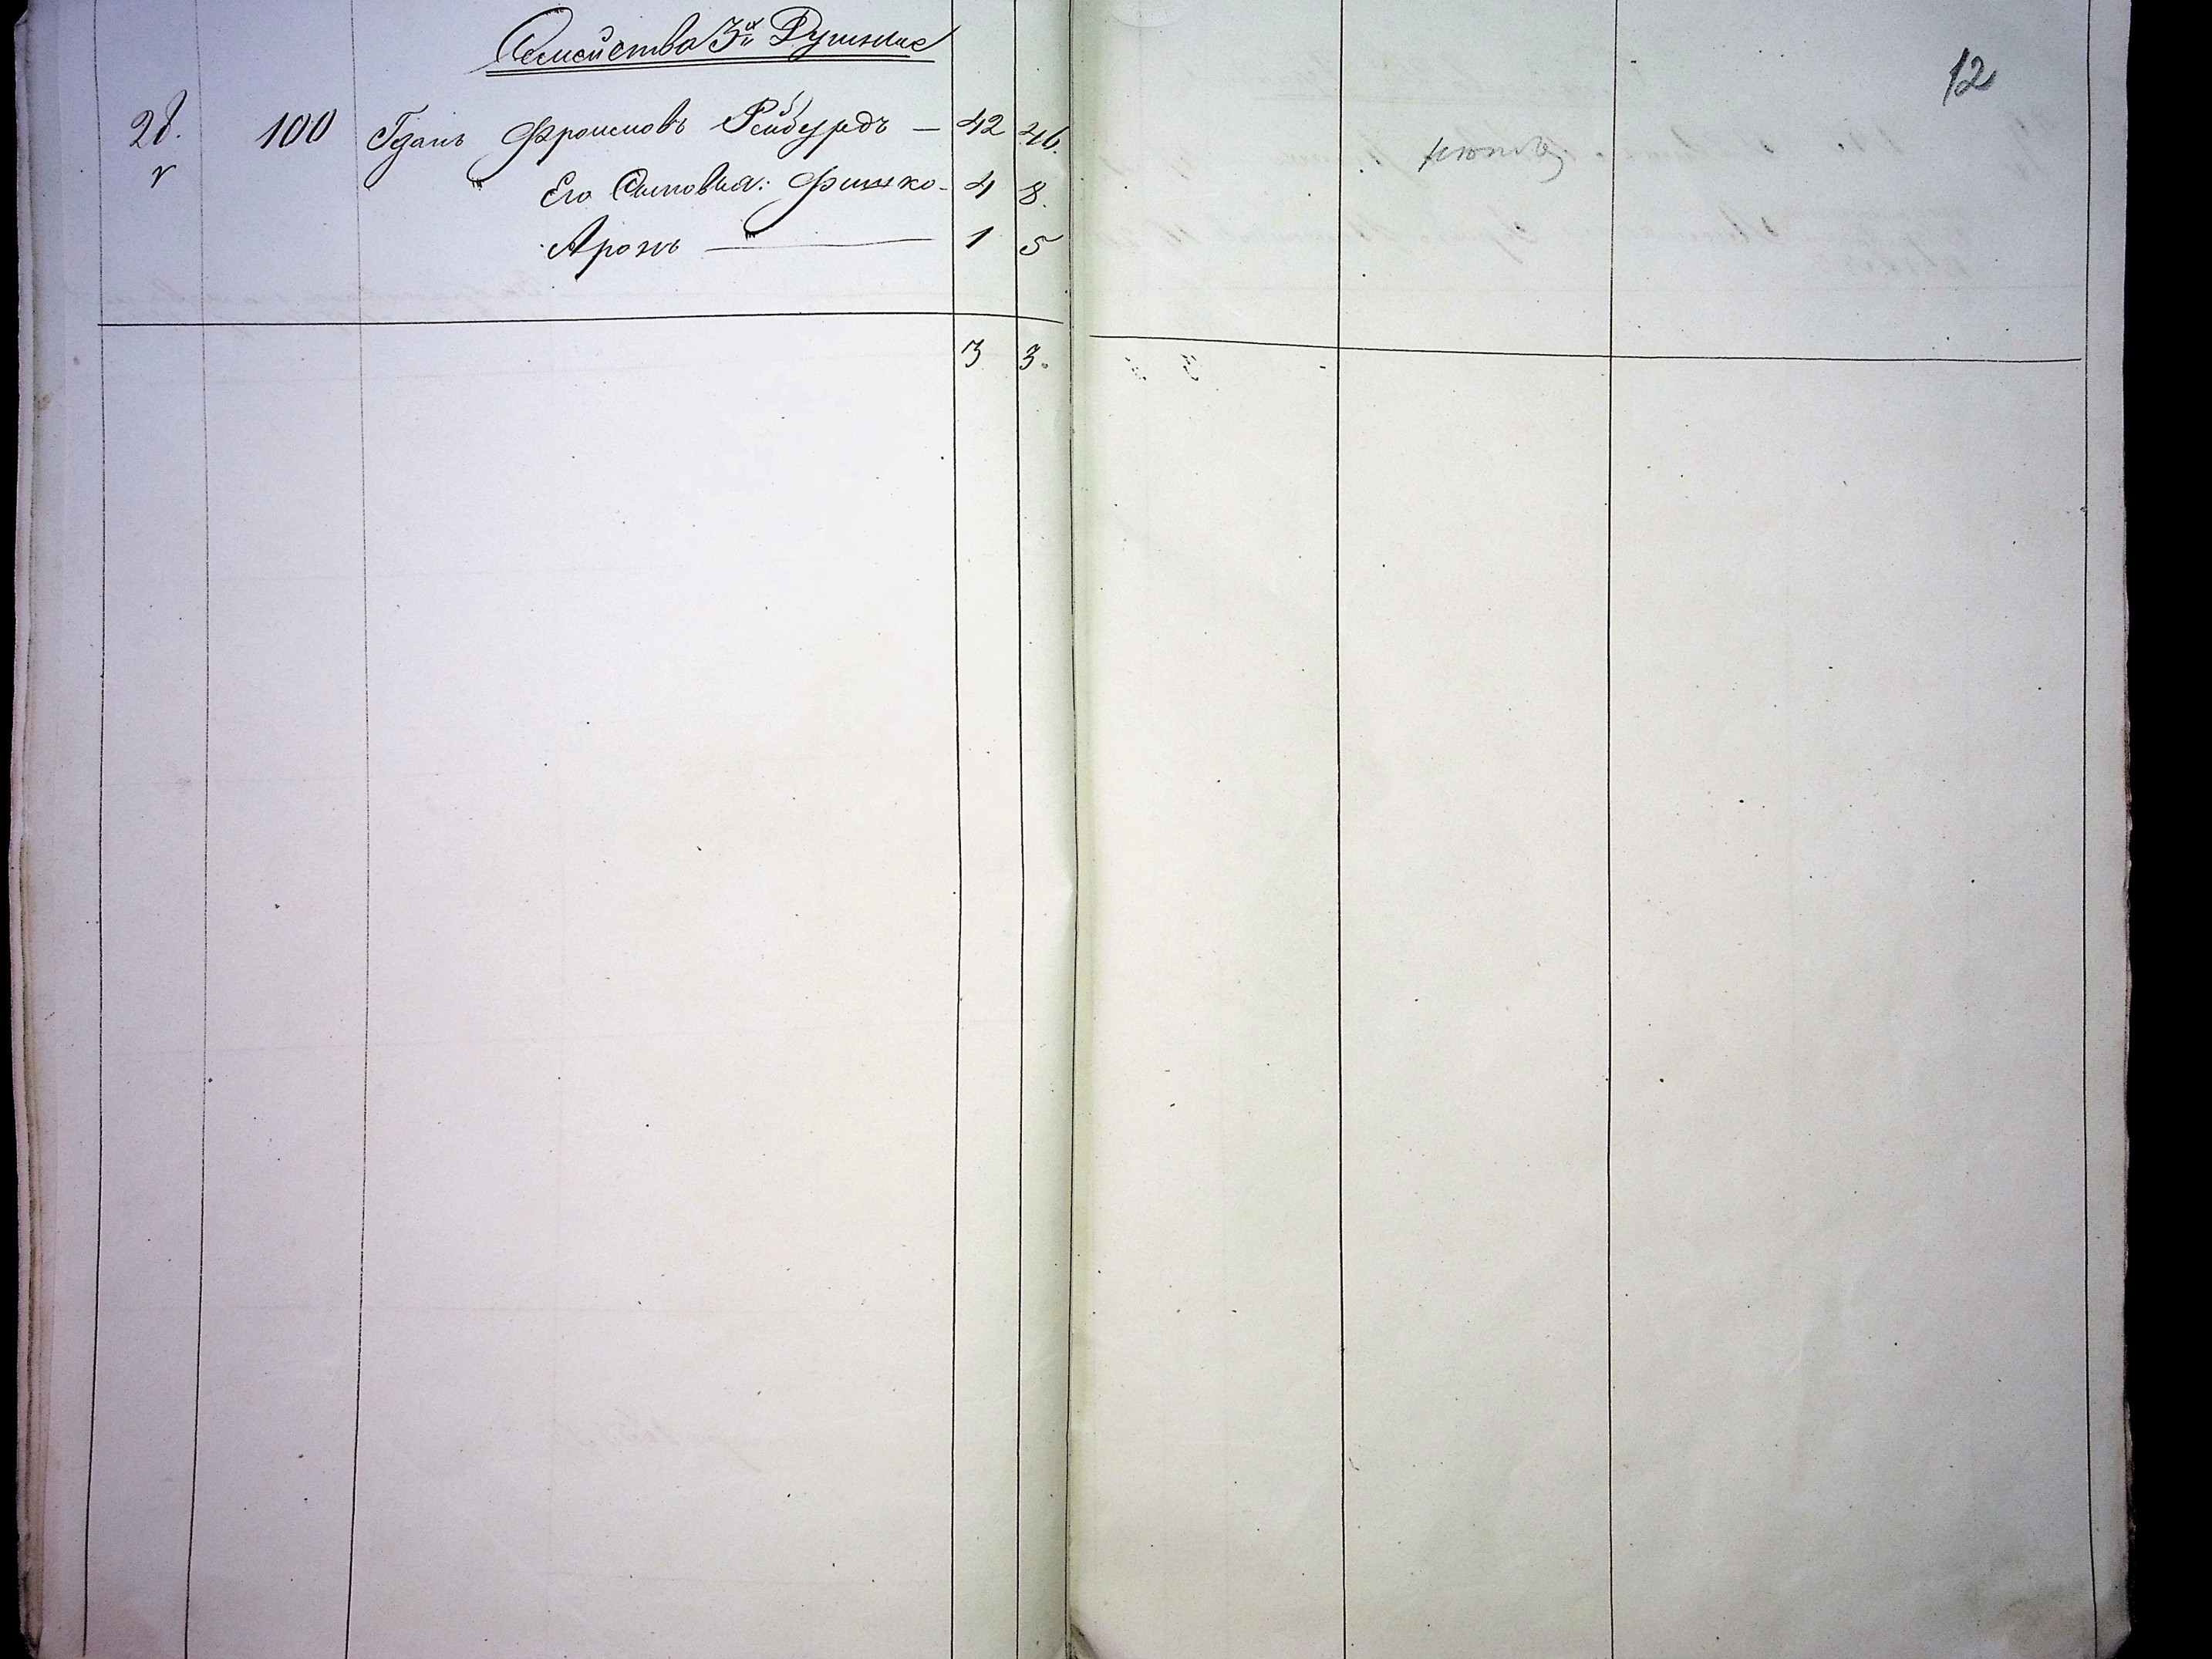 Семейства 3х Душные
28. 100 Гданъ Фроимовъ Рейбурдъ — 42 46.
Его Сыновья: Фишко - 4 8.
Аронъ — 1 5
3 3.
12